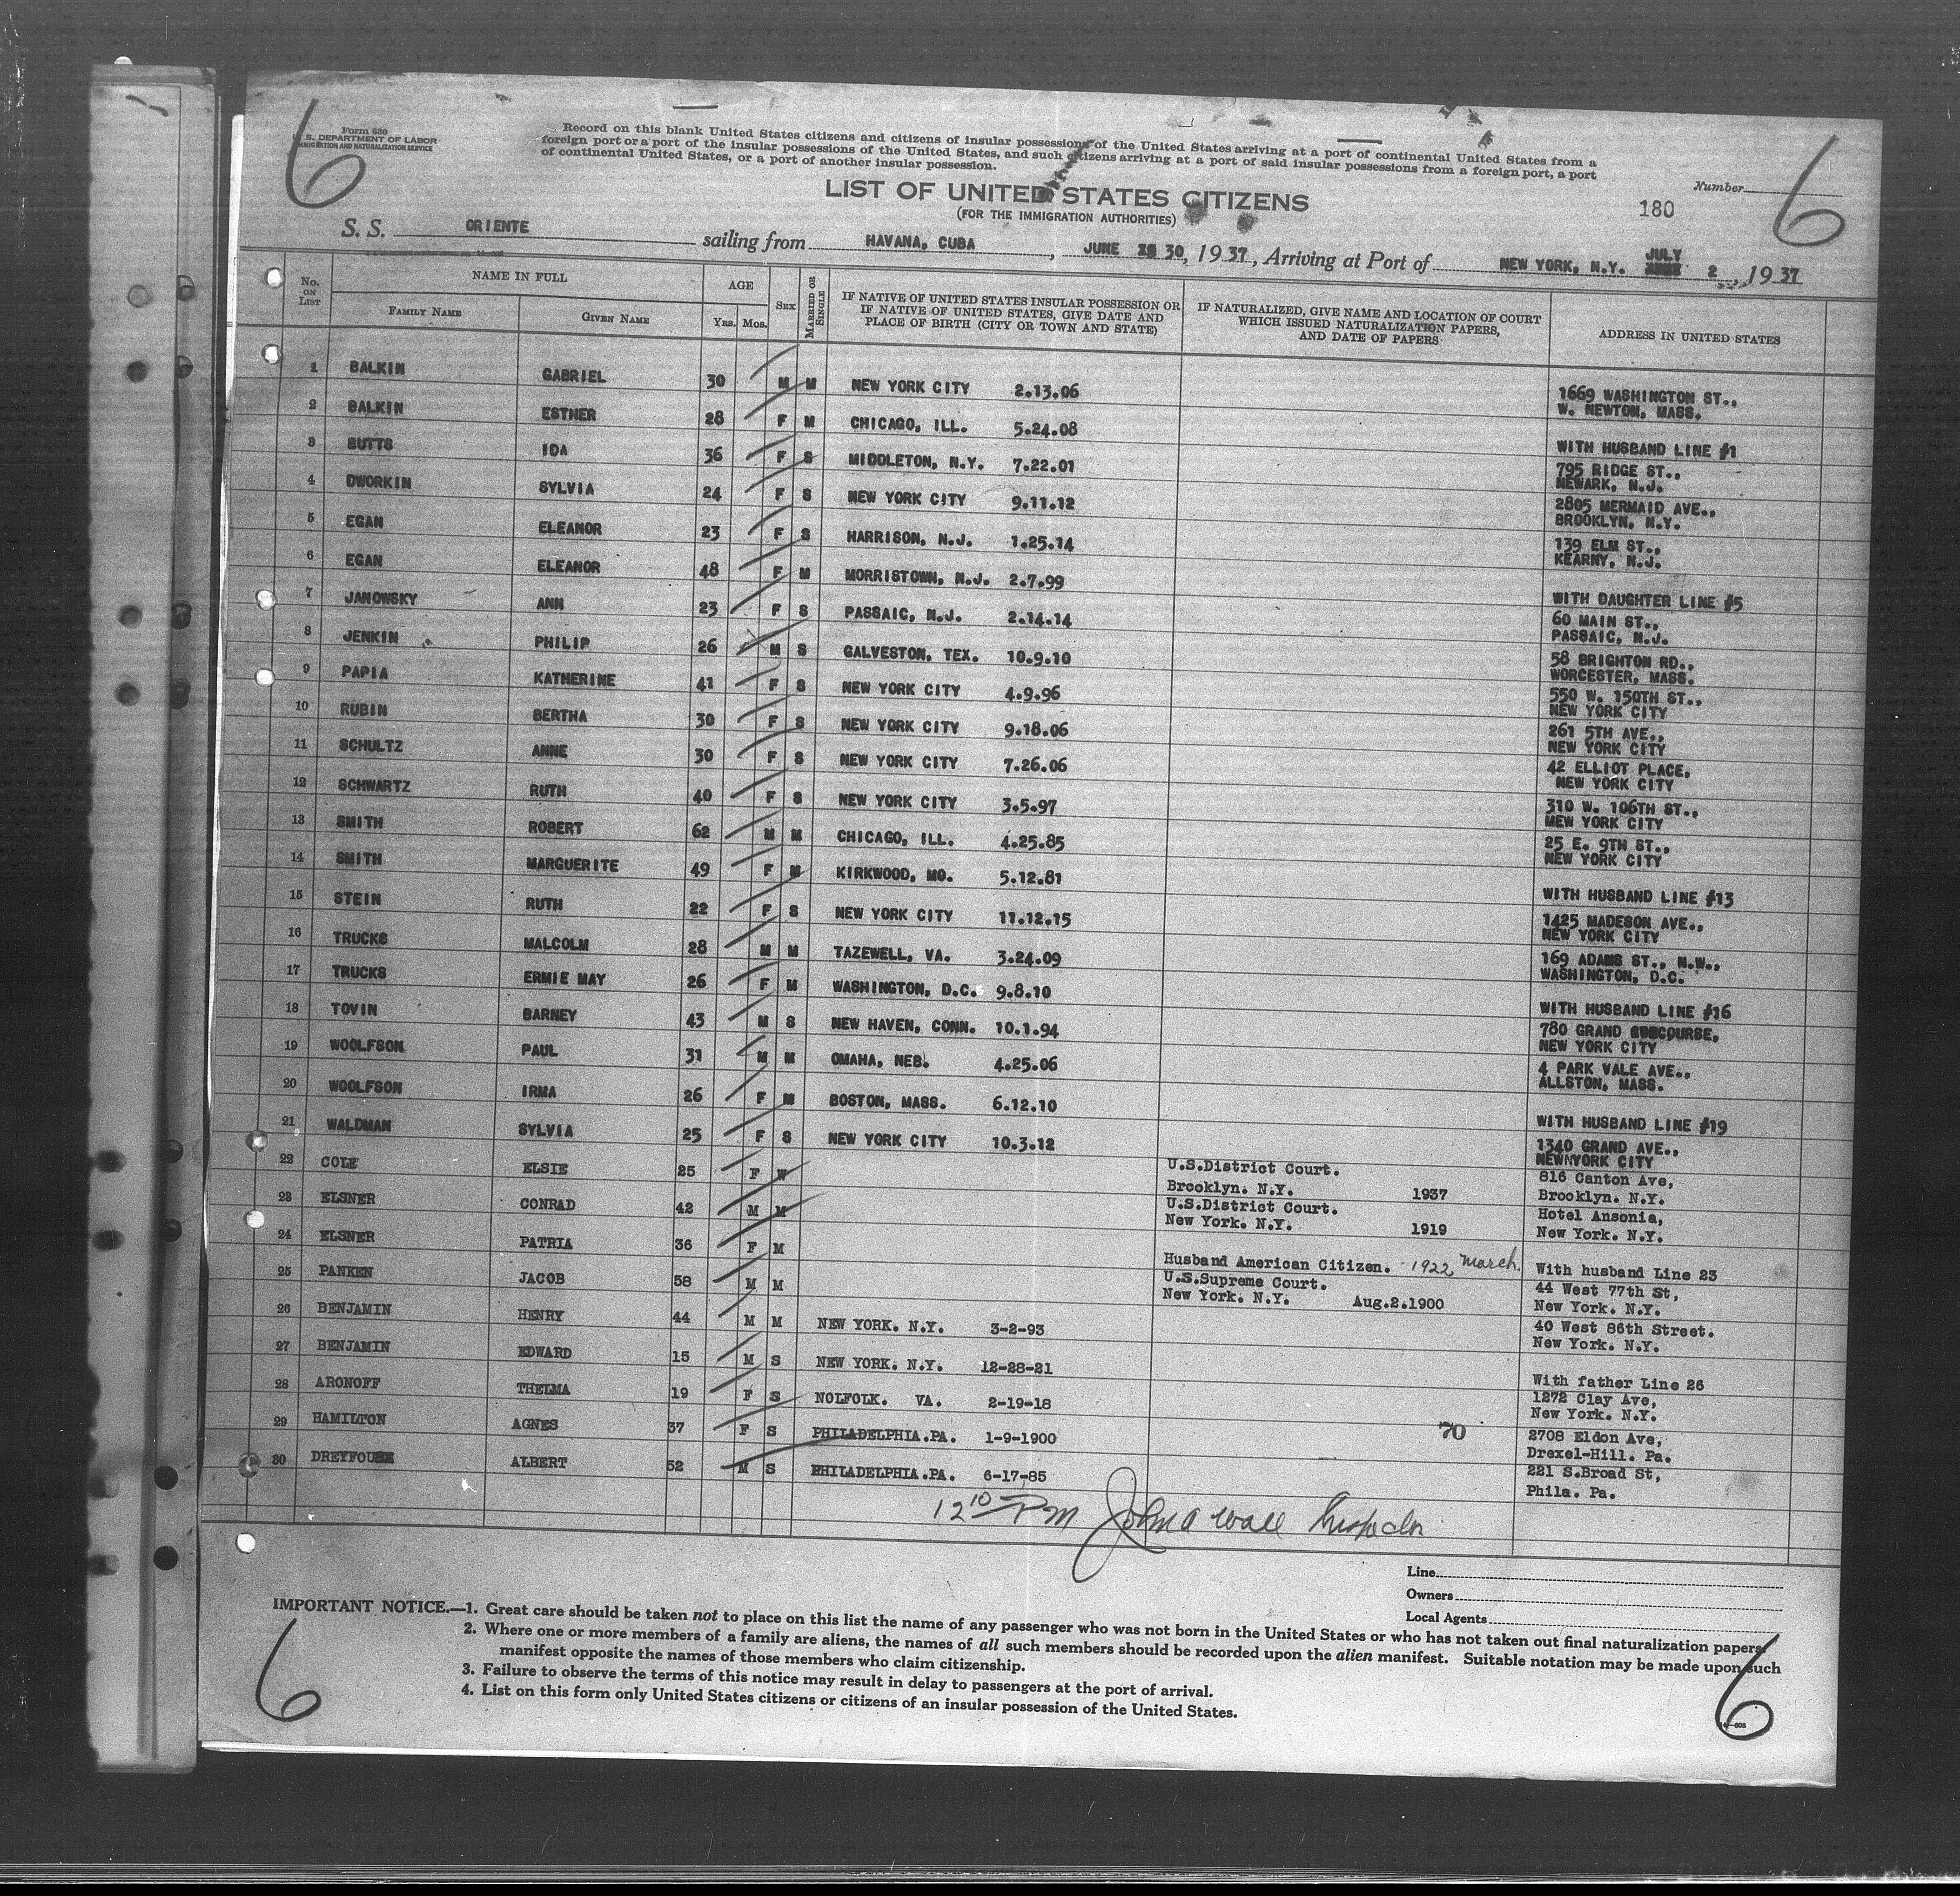 6
6
Form 630
U. S. DEPARTMENT OF LABOR
IMMIGRATION AND NATURALIZATION SERVICE
Record on this blank United States citizens and citizens of insular possessions of the United States arriving at a port of continental United States from a
foreign port or a port of the insular possessions of the United States, and such citizens arriving at a port of said insular possessions from a foreign port, a port
of continental United States, or a port of another insular possession.
Number
LIST OF UNITED STATES CITIZENS
(FOR THE IMMIGRATION AUTHORITIES)
180
S. S. ORIENTE sailing from HAVANA, CUBA, JUNE 30, 1937, Arriving at Port of NEW YORK, N.Y. JULY 2, 1937
No. ON LIST NAME IN FULL AGE SEX MARRIED OR SINGLE IF NATIVE OF UNITED STATES INSULAR POSSESSION OR IF NATIVE OF UNITED STATES, GIVE DATE AND PLACE OF BIRTH (CITY OR TOWN AND STATE) IF NATURALIZED, GIVE NAME AND LOCATION OF COURT WHICH ISSUED NATURALIZATION PAPERS, AND DATE OF PAPERS ADDRESS IN UNITED STATES
FAMILY NAME GIVEN NAME YRS. MOS.
1 BALKIN GABRIEL 30 M M NEW YORK CITY 2.13.06 1669 WASHINGTON ST., W. NEWTON, MASS.
2 BALKIN ESTHER 28 F M CHICAGO, ILL. 5.24.08 WITH HUSBAND LINE #1
3 BUTTS IDA 36 F S MIDDLETON, N.Y. 7.22.01 795 RIDGE ST., NEWARK, N.J.
4 DWORKIN SYLVIA 24 F S NEW YORK CITY 9.11.12 2805 MERMAID AVE., BROOKLYN, N.Y.
5 EGAN ELEANOR 23 F S HARRISON, N.J. 1.25.14 139 ELM ST., KEARNY, N.J.
6 EGAN ELEANOR 48 F M MORRISTOWN, N.J. 2.7.99 WITH DAUGHTER LINE #5
7 JANOWSKY ANN 23 F S PASSAIC, N.J. 2.14.14 60 MAIN ST., PASSAIC, N.J.
8 JENKIN PHILIP 26 M S GALVESTON, TEX. 10.9.10 58 BRIGHTON RD., WORCESTER, MASS.
9 PAPIA KATHERINE 41 F S NEW YORK CITY 4.9.96 550 W. 150TH ST., NEW YORK CITY
10 RUBIN BERTHA 30 F S NEW YORK CITY 9.18.06 261 5TH AVE., NEW YORK CITY
11 SCHULTZ ANNE 30 F S NEW YORK CITY 7.26.06 42 ELLIOT PLACE, NEW YORK CITY
12 SCHWARTZ RUTH 40 F S NEW YORK CITY 3.5.97 310 W. 106TH ST., MEW YORK CITY
13 SMITH ROBERT 62 M M CHICAGO, ILL. 4.25.85 25 E. 9TH ST., NEW YORK CITY
14 SMITH MARGUERITE 49 F M KIRKWOOD, MO. 5.12.81 WITH HUSBAND LINE #13
15 STEIN RUTH 22 F S NEW YORK CITY 11.12.15 1425 MADESON AVE., NEW YORK CITY
16 TRUCKS MALCOLM 28 M M TAZEWELL, VA. 3.24.09 169 ADAMS ST., N.W., WASHINGTON, D.C.
17 TRUCKS ERMIE MAY 26 F M WASHINGTON, D.C. 9.8.10 WITH HUSBAND LINE #16
18 TOVIN BARNEY 43 M S NEW HAVEN, CONN. 10.1.94 780 GRAND NEW YORK CITY
19 WOOLFSON PAUL 31 M M OMAHA, NEB. 4.25.06 4 PARK VALE AVE., ALLSTON, MASS.
20 WOOLFSON IRMA 26 F M BOSTON, MASS. 6.12.10 WITH HUSBAND LINE #19
21 WALDMAN SYLVIA 25 F S NEW YORK CITY 10.3.12 1340 GRAND AVE., NEWNYORK CITY
22 COLE ELSIE 25 F W U.S.District Court. Brooklyn. N.Y. 1937 816 Canton Ave, Brooklyn. N.Y.
23 ELSNER CONRAD 42 M M U.S.District Court. New York. N.Y. 1919 Hotel Ansonia, New York. N.Y.
24 ELSNER PATRIA 36 F M Husband American Citizen. 1922 March. With husband Line 23
25 PANKEN JACOB 58 M M U.S.Supreme Court. New York. N.Y. Aug.2.1900 44 West 77th St, New York. N.Y.
26 BENJAMIN HENRY 44 M M NEW YORK. N.Y. 3-2-93 40 West 86th Street. New York. N.Y.
27 BENJAMIN EDWARD 15 M S NEW YORK. N.Y. 12-28-21 With father Line 26
28 ARONOFF THELMA 19 F S NOLFOLK. VA. 2-19-18 1272 Clay Ave, New York. N.Y.
29 HAMILTON AGNES 37 F S PHILADELPHIA.PA. 1-9-1900 70 2708 Eldon Ave, Drexel-Hill. Pa.
30 ALBERT 52 M S PHILADELPHIA.PA. 6-17-85 221 S.Broad St, Phila. Pa.
12 10 PM John a Wall Inspector
Line
Owners
Local Agents
IMPORTANT NOTICE.—1. Great care should be taken not to place on this list the name of any passenger who was not born in the United States or who has not taken out final naturalization papers.
2. Where one or more members of a family are aliens, the names of all such members should be recorded upon the alien manifest. Suitable notation may be made upon such
manifest opposite the names of those members who claim citizenship.
3. Failure to observe the terms of this notice may result in delay to passengers at the port of arrival.
4. List on this form only United States citizens or citizens of an insular possession of the United States.
6
6